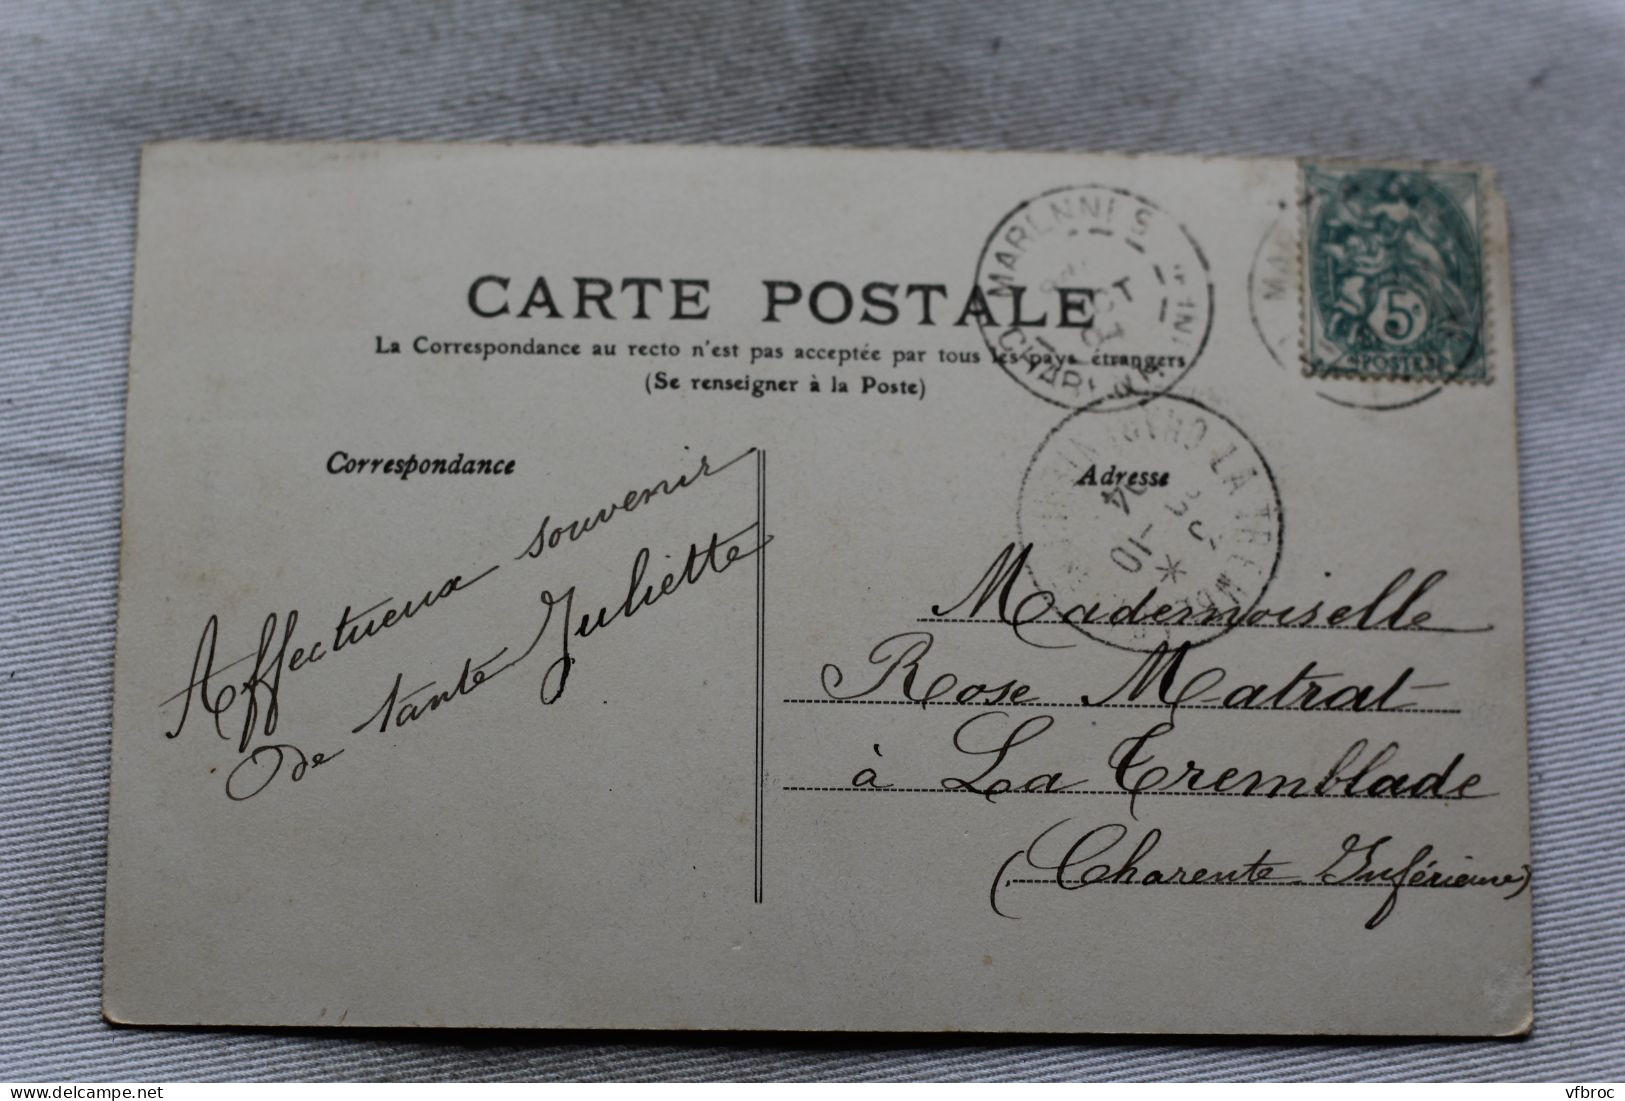 CARTE POSTALE
La Correspondance au recto n'est pas acceptée par tous les pays étrangers
(Se renseigner à la Poste)
Correspondance
Adresse
Affectueux souvenir
de tante Juliette
Mademoiselle
Rose Matrat
à La Tremblade
(Charente Inférieure)
MARENNES
LA TREMBLADE
5c
POSTES
vfbroc